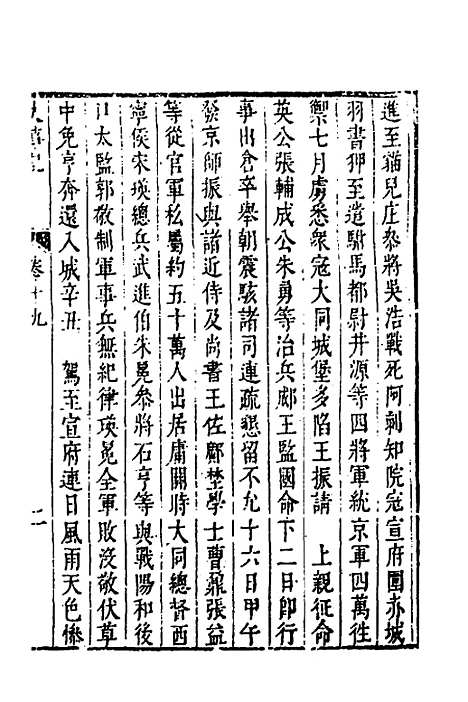 進至猫兒庄叅將吳浩戰死阿剌知院寇宣府圍赤城
羽書狎至遣駙馬都尉井源等四將軍統京軍四萬徃
禦七月虜悉衆寇大同城堡多陷王振請　上親征命
英公張輔成公朱勇等治兵郕王監國命下二日即行
事出倉卒舉朝震駭諸司連疏懇留不允十六日甲午
發京師振與諸近侍及尚書王佐鄺埜學士曹鼐張益
等從官軍私屬約五十萬人出居庸關時大同總督西
寧侯宋瑛總兵武進伯朱冕叅將石亨等與戰陽和後
口太監郭敬制軍事兵無紀律瑛冕全軍敗沒敬伏草
中免亨奔還入城辛丑　駕至宣府連日風雨天色慘
卷十九
二